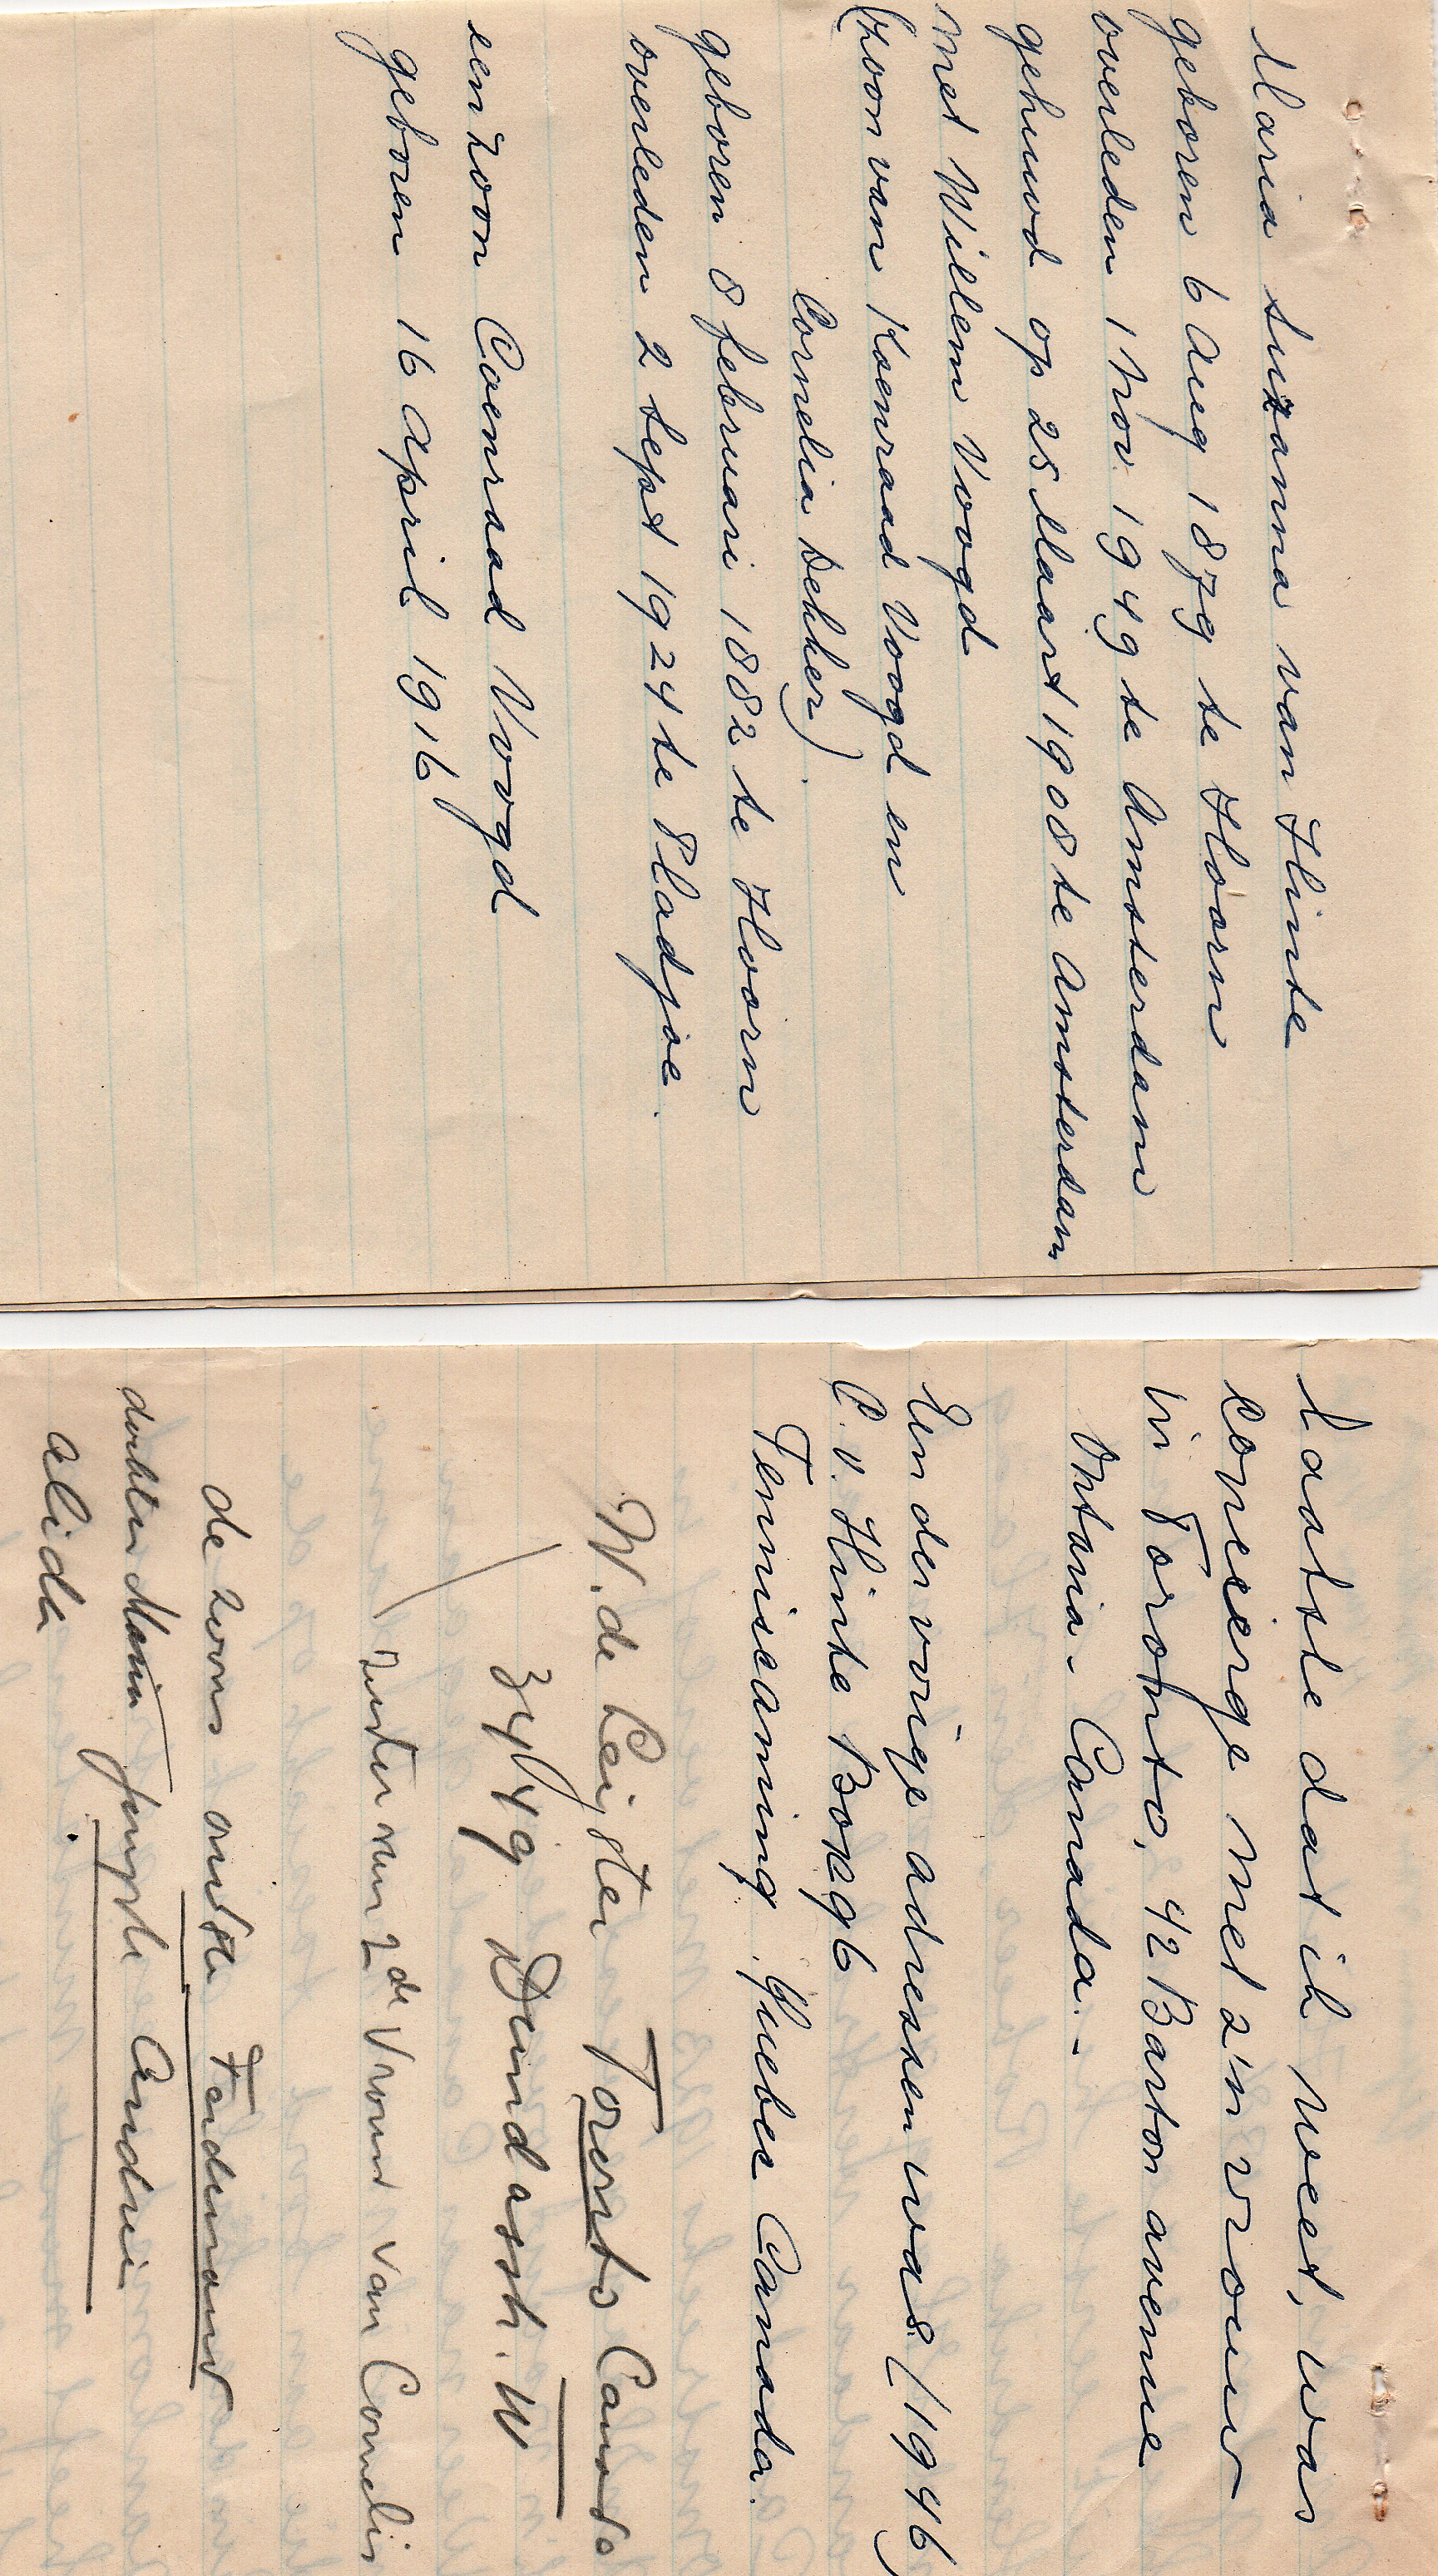 Maria Suzanna van Hinte
geboren 6 Aug 1879 te Hoorn
overleden 1 Nov. 1949 te Amsterdam
gehuwd op 25 Maart 1908 te Amsterdam
met Willem Voogd
(zoon van Koenraad Voogd en
Cornelia Dekker).
geboren 8 februari 1882 te Hoorn
overleden 2 Sept 1924 te Pladjoe.
een zoon Coenraad Voogd
geboren 16 April 1916
Laatste dat ik weet, was
conciërge met z'n vrouw
in Toronto, 42 Barton avenue
Ontario - Canada. -
Een der vorige adressen was (1946)
C. v. Hinte Box 96
Temiscaming. Quebec Canada.
W. de Leijster Toronto Canada
3449 Dundas str. W
zuster van 2de Vrouw van Cornelis
de zoons oudste Ferdinand
dochter Maria jongste Andrie
Alida